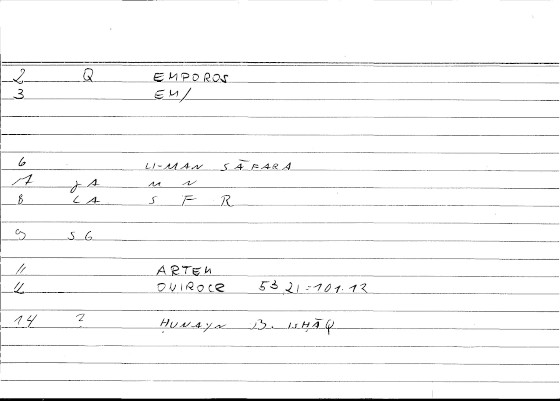 2 Q EMPOROS
3 EM/
6 LI-MAN SĀFARA
7 JA M N
8 LA S F R
9 SG
11 ARTEM
12 ONIROCR 53,21=101.12
14 ? ḤUNAYN B. ISḤĀQ